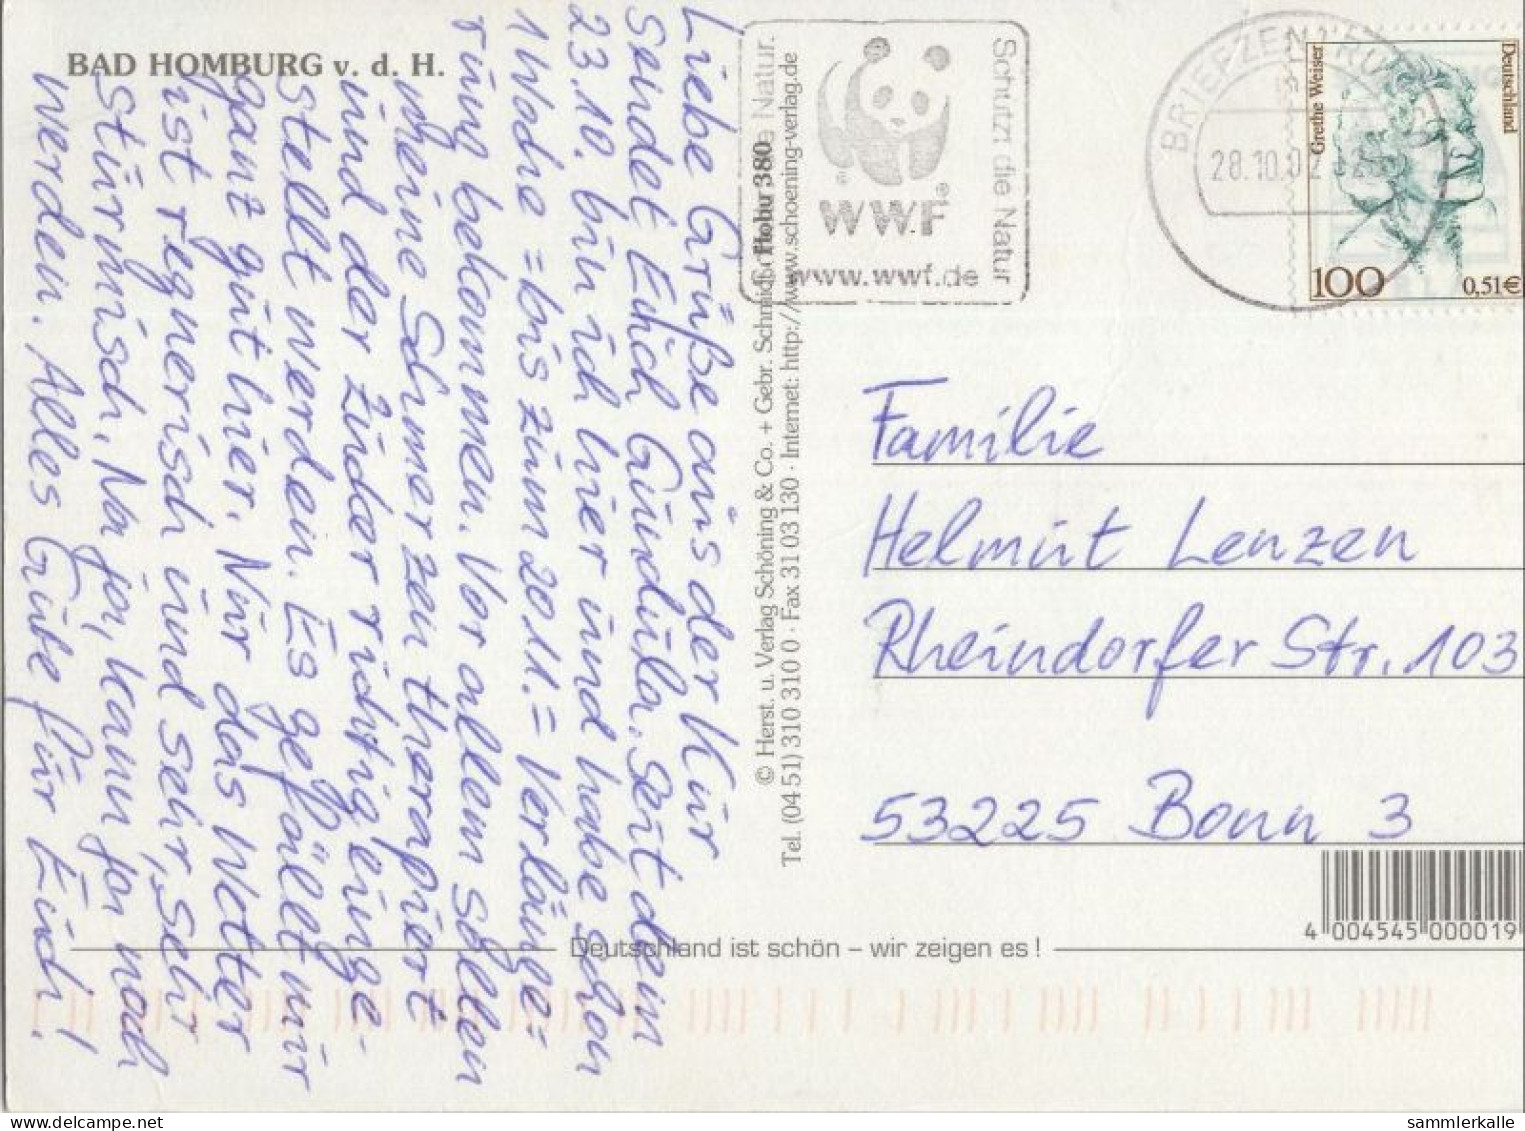 BAD HOMBURG v. d. H.
Liebe Grüße aus der Kur
sendet Euch Gundula. Seit dem
23.10. bin ich hier und habe schon
1 Woche = bis zum 20.11. = Verlänge=
rung bekommen. Vor allem sollen
meine Schmerzen therapiert
und der Zucker richtig einge-
stellt werden. Es gefällt mir
ganz gut hier. Nur das Wetter
ist regnerisch und sehr, sehr
stürmisch. Na ja, kann ja noch
werden. Alles Gute für Euch!
© Herst. u. Verlag Schöning & Co. + Gebr. Schmidt · Hobu 380
Tel. (04 51) 310 310 0 · Fax 31 03 130 · Internet: http://www.schoening-verlag.de
Schutzt die Natur.
WWF
www.wwf.de
Schutzt die Natur
BRIEFZENTRUM
28.10.02
Grethe Weiser
Deutschland
100
0,51€
Familie
Helmut Lenzen
Rheindorfer Str. 103
53225 Bonn 3
4 004545 000019
Deutschland ist schön – wir zeigen es !
sammlerkalle